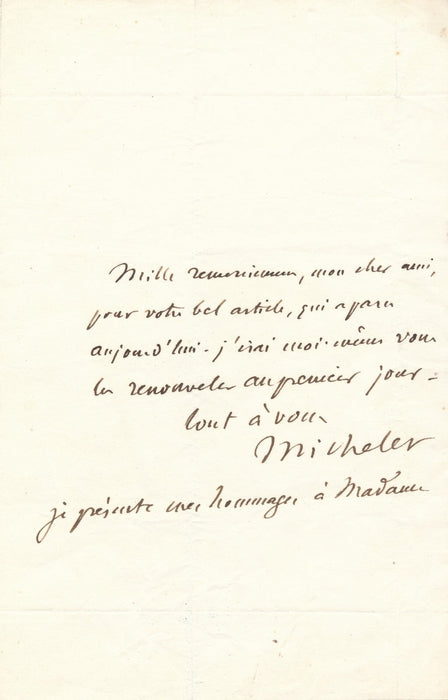 Mille remerciemens, mon cher ami,
pour votre bel article, qui a paru
aujourd'hui - j'irai moi-même vous
les renouveler au premier jour -
tout à vous
Michelet
je présente mes hommages à Madame